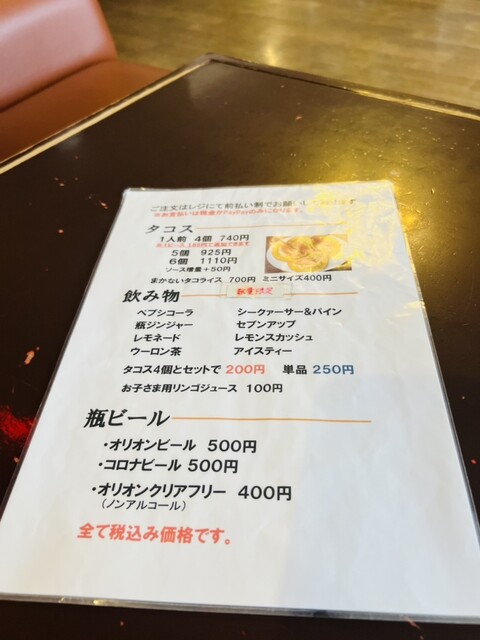 ご注文はレジにて前払い制でお願いしております
※お支払いは現金かPayPayのみになります。
タコス
1人前 4個 740円
5個 925円
6個 1110円
ソース増量+50円
まかないタコライス 700円 ミニサイズ400円
数量限定
飲み物
ペプシコーラ シークァーサー&パイン
瓶ジンジャー セブンアップ
レモネード レモンスカッシュ
ウーロン茶 アイスティー
タコス4個とセットで 200円 単品 250円
お子さま用リンゴジュース 100円
瓶ビール
・オリオンビール 500円
・コロナビール 500円
・オリオンクリアフリー 400円
(ノンアルコール)
全て税込み価格です。